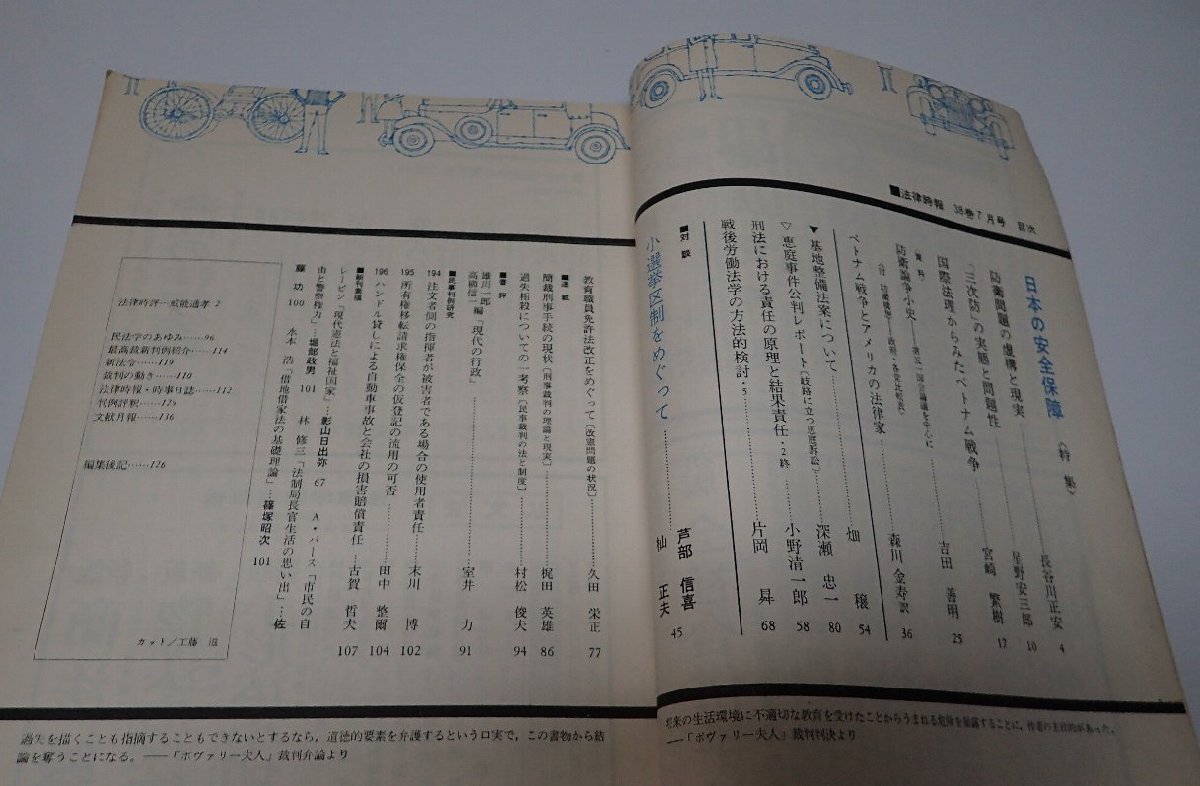 ■法律時報 38巻7月号 目次
日本の安全保障 〈特集〉
防衛問題の虚構と現実 長谷川正安 4
「三次防」の実態と問題性 星野安三郎 10
国際法理からみたベトナム戦争 宮崎 繁樹 17
〈資料〉
防衛論争小史 吉田 善明 25
ベトナム戦争とアメリカの法律家 森川 金寿訳 36
▼基地整備法案について 畑 穣 54
▽恵庭事件公判レポート〔岐路に立つ恵庭訴訟〕 深瀬 忠一 80
刑法における責任の原理と結果責任・2終 小野清一郎 58
戦後労働法学の方法的検討・5 片岡 曻 68
■対談
小選挙区制をめぐって 芦部 信喜 杣 正夫 45
教育職員免許法改正をめぐって〔改憲問題の状況〕 久田 栄正 77
■連載
簡裁刑事手続の現状〔刑事裁判の理論と現実〕 梶田 英雄 86
過失相殺についての一考察〔民事裁判の法と制度〕 村松 俊夫 94
■書評
雄川一郎・高柳信一編「現代の行政」 室井 力 91
■民事判例研究
194 注文者側の指揮者が被害者である場合の使用者責任 末川 博 102
195 所有権移転請求権保全の仮登記の流用の可否 田中 整爾 104
196 ハンドル貸しによる自動車事故と会社の損害賠償責任 古賀 哲夫 107
■新刊案福
レービン「現代憲法と福祉国家」…影山日出弥 67 A・バース「市民の自
由と警察権力」…堀部政男 101 林 修三「法制局長官生活の思い出」…佐
藤 功 100 水本 浩「借地借家法の基礎理論」…篠塚昭次 101
法律時評―戒能通孝 2
民法学のあゆみ……96
最高裁新判例紹介……114
新法令……119
裁判の動き……110
法律時報・時事日誌……112
判例評釈……125
文献月報……136
編集後記……126
カット／工藤
過失を描くことも指摘することもできないとするなら，道徳的要素を弁護するという口実で，この書物から結
論を奪うことになる。――「ボヴァリー夫人」裁判弁論より
将来の生活環境に不適切な教育を受けたことからうまれる危険を暴露することに，作者の主目的があった。
――「ボヴァリー夫人」裁判判決より